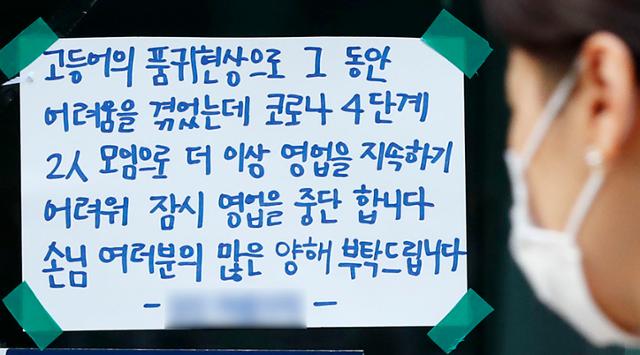 고등어의 품귀현상으로 그 동안
어려움을 겪었는데 코로나 4단계
2人 모임으로 더 이상 영업을 지속하기
어려워 잠시 영업을 중단 합니다
손님 여러분의 많은 양해 부탁드립니다